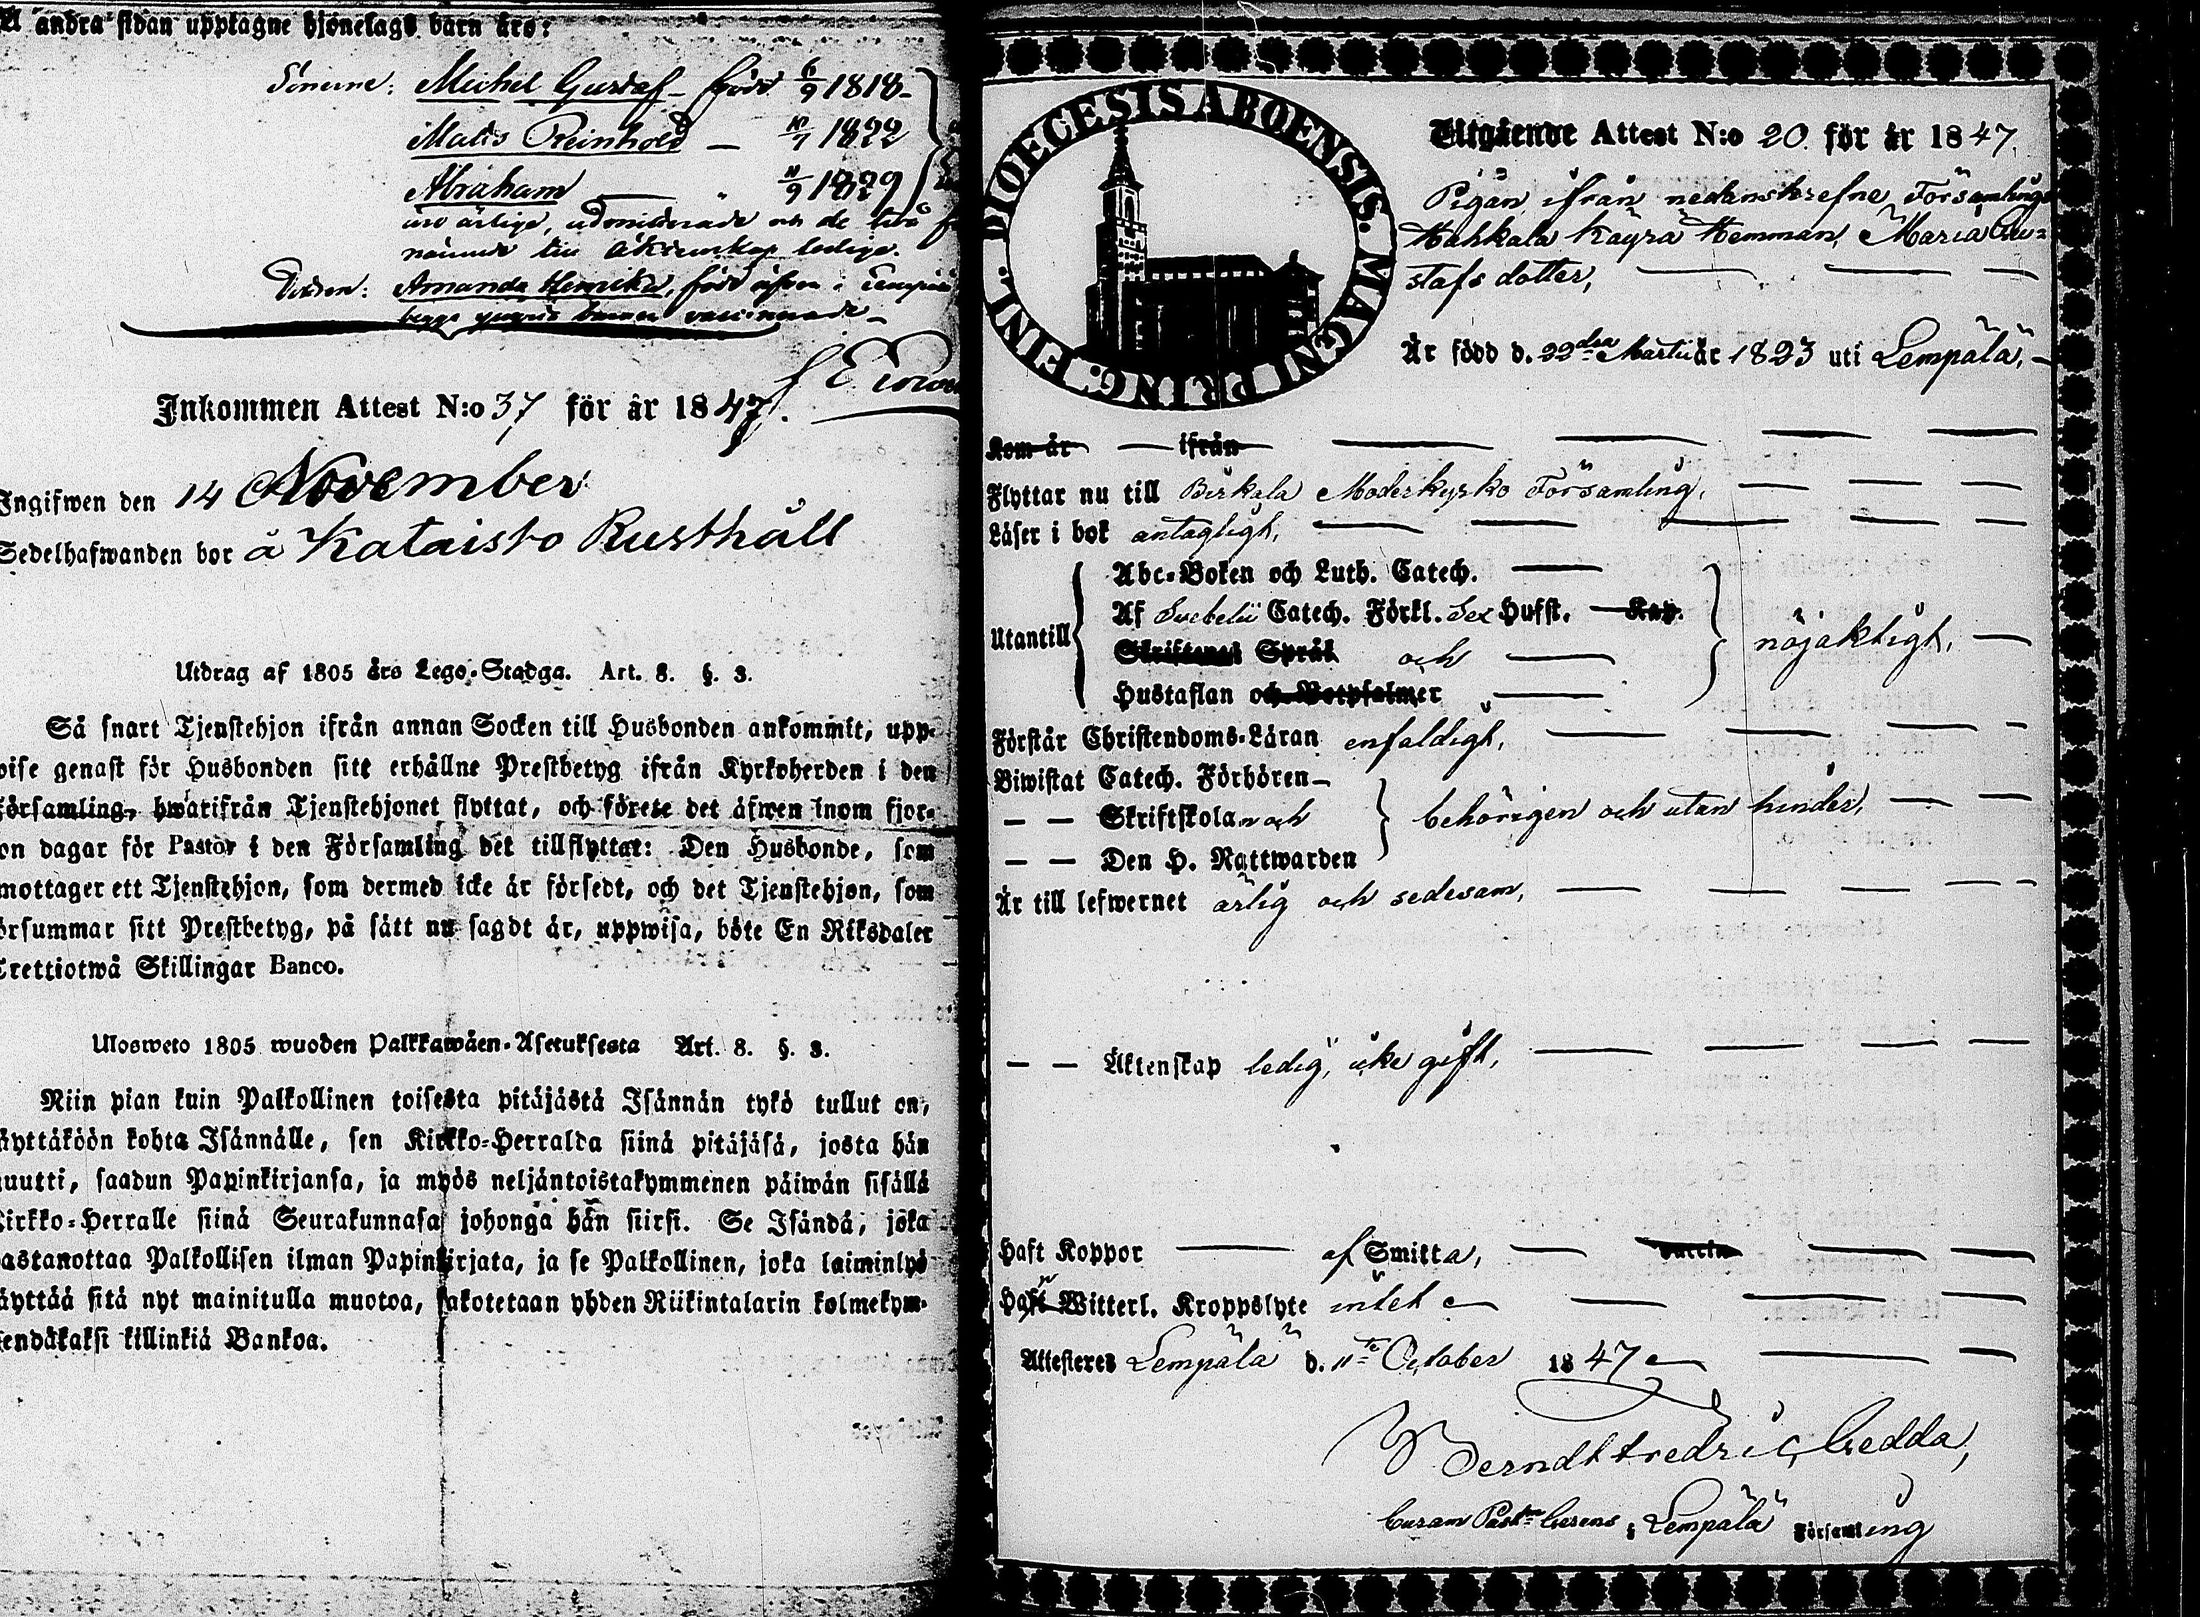 Å andra sidan upptagne hjonelags barn äro:
Sönerne: Michel Gustaf - född 6/9 1818 -
Matts Reinhold — 10/7 1822
Abraham — " 11/9 1829
äro ärlige, admitterade och de två
nämnde till äktenskap lediga.
Dottren: Amanda Henrika, född äfven i
begge yngre barnen vaccinerade -
Inkommen Attest N:o 37 för år 1847.
Ingifwen den 14 November
Sedelhafwanden bor å Kataisto Rusthåll
Utdrag af 1805 års Lego-Stadga. Art. 8. §. 3.
Så snart Tjenstehjon ifrån annan Socken till Husbonden ankommit, upp-
wise genast för Husbonden sitt erhållne Prestbetyg ifrån Kyrkoherden i den
Församling, hwarifrån Tjenstehjonet flyttat, och förete det äfwen inom fjor-
ton dagar för Pastor i den Församling det tillflyttat: Den Husbonde, som
emottager ett Tjenstehjon, som dermed icke är försedt, och det Tjenstehjon, som
försummar sitt Prestbetyg, på sätt nu sagdt är, uppwisa, böte En Riksdaler
Trettiotwå Skillingar Banco.
Ulosweto 1805 wuoden Palkkawäen-Asetuksesta Art. 8. §. 3.
Niin pian kuin Palkollinen toisesta pitäjästä Isännän tykö tullut on,
näyttäköön kohta Isännälle, sen Kirkko-Herralda siinä pitäjäsä, josta hän
muutti, saadun Papinkirjansa, ja myös neljäntoistakymmenen päiwän sisällä
Kirkko-Herralle siinä Seurakunnasa johonga hän siirsi. Se Isändä, joka
wastanottaa Palkollisen ilman Papinkirjata, ja se Palkollinen, joka laiminlyö
näyttää sitä nyt mainitulla muotoa, sakotetaan yhden Riikintalarin kolmekym-
mendäkaksi killinkiä Bankoa.
DIOECESIS ABOENSIS. MAGNI PRING. FINL.
Utgående Attest N:o 20. för år 1847.
Pigan ifrån nedanskrefne Församlings
Hahkala Käyrä Hemman, Maria Gu=
stafs dotter,
Är född d. 22dra Martii år 1823 uti Lempälä,
Kom år — ifrån
Flyttar nu till Birkala Moderkyrko Församling,
Läser i bok antagligt,
Utantill
Abc-Boken och Luth. Catech.
Af Svebelii Catech. Förkl. Sex Hufst. Kap.
Skriftenes Språk och
Hustaflan och Botpsalmer
nöjaktigt,
Förstår Christendoms-Läran enfaldigt,
Biwistat Catech. Förhören -
— — Skriftskolan och
— — Den H. Nattwarden
behörigen och utan hinder,
Är till lefwernet ärlig och sedesam,
— — Äktenskap ledig, icke gift,
Haft Koppor — af Smitta, — vaccin
Haft Witterl. Kroppslyte intet
Attesteres Lempälä d. 11te October 1847
Berndt Fredric Gedda,
Curam Past. Gerens i Lempälä Församling